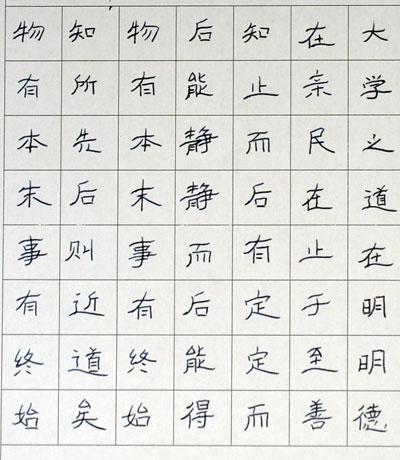 大学之道在明明德
在亲民在止于至善
知止而后有定定而
后能静静而后能得
物有本末事有终始
知所先后则近道矣
物有本末事有终始